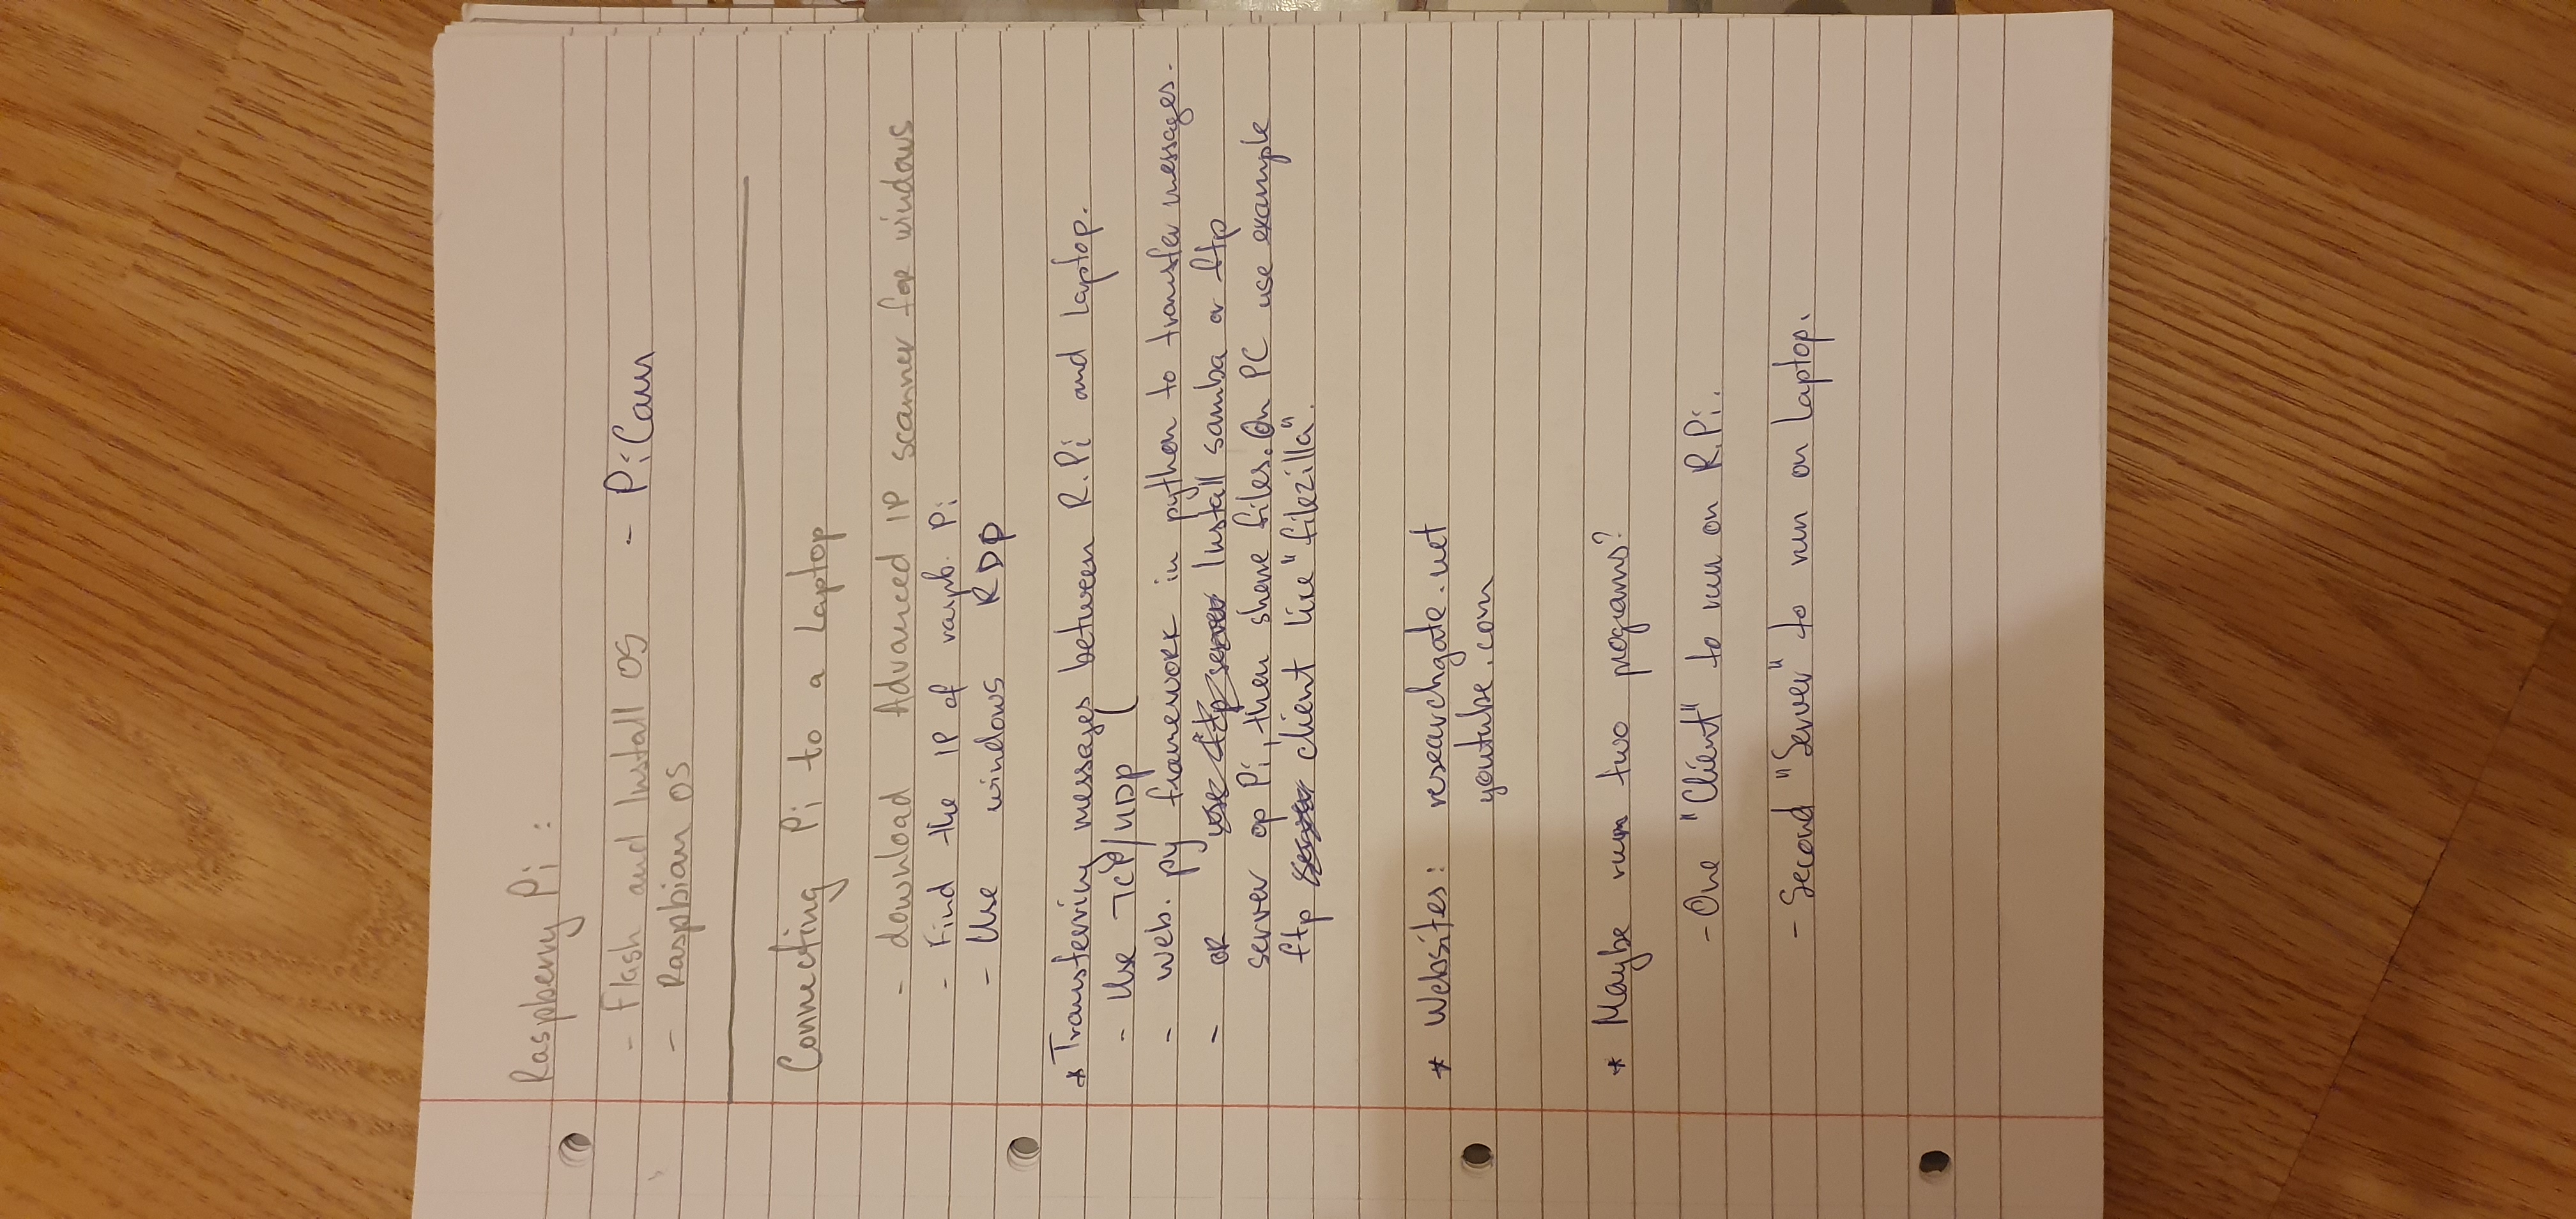 Raspberry Pi :
- Flash and Install OS - PiCam
- Raspbian OS
Connecting Pi to a Laptop
- download Advanced IP scanner for windows
- Find the IP of raspb. Pi
- Use windows RDP
* Transferring messages between R.Pi and Laptop.
- Use TCP/UDP (
- web.py framework in python to transfer messages.
- OR use ftp server Install samba or ftp
server op Pi, then share files. On PC use example
ftp server client like "filezilla".
* Websites: researchgate.net
youtube.com
* Maybe run two programs?
- One "Client" to run on R.Pi.
- Second "Server" to run on Laptop.